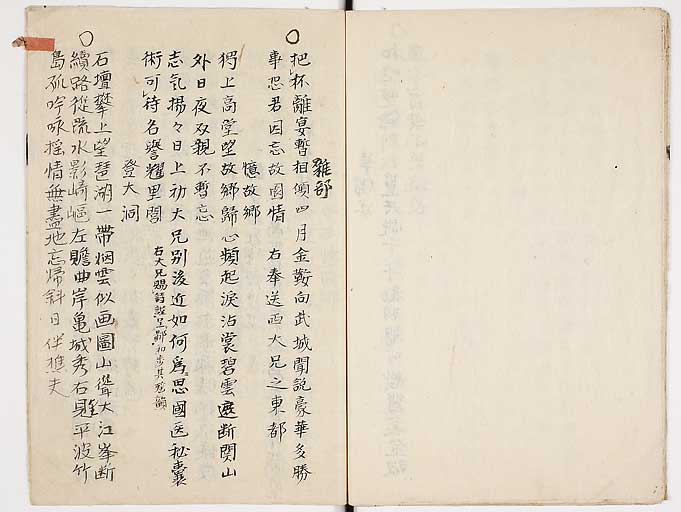 雜部
○把杯離宴暫相傾四月金鞍向武城聞說豪華多勝
事忍君因忘故園情　右奉送西大兄之東都
憶故鄉
獨上高堂望故鄉歸心頻起淚沾裳碧雲遮断関山
外日夜双親不暫忘
志気揚々日上初大兄別後近如何為思國医秘囊
術可待名譽耀里閭
右大兄賜
鄙和步其
登大洞
○石壇攀上望琶湖一帶烟雲似画圖山聳大江峯断
續路從疏水影崎嶇左瞻曲岸亀城秀右平波竹
島孤吟咏揺情無盡地忘帰斜日伴樵夫